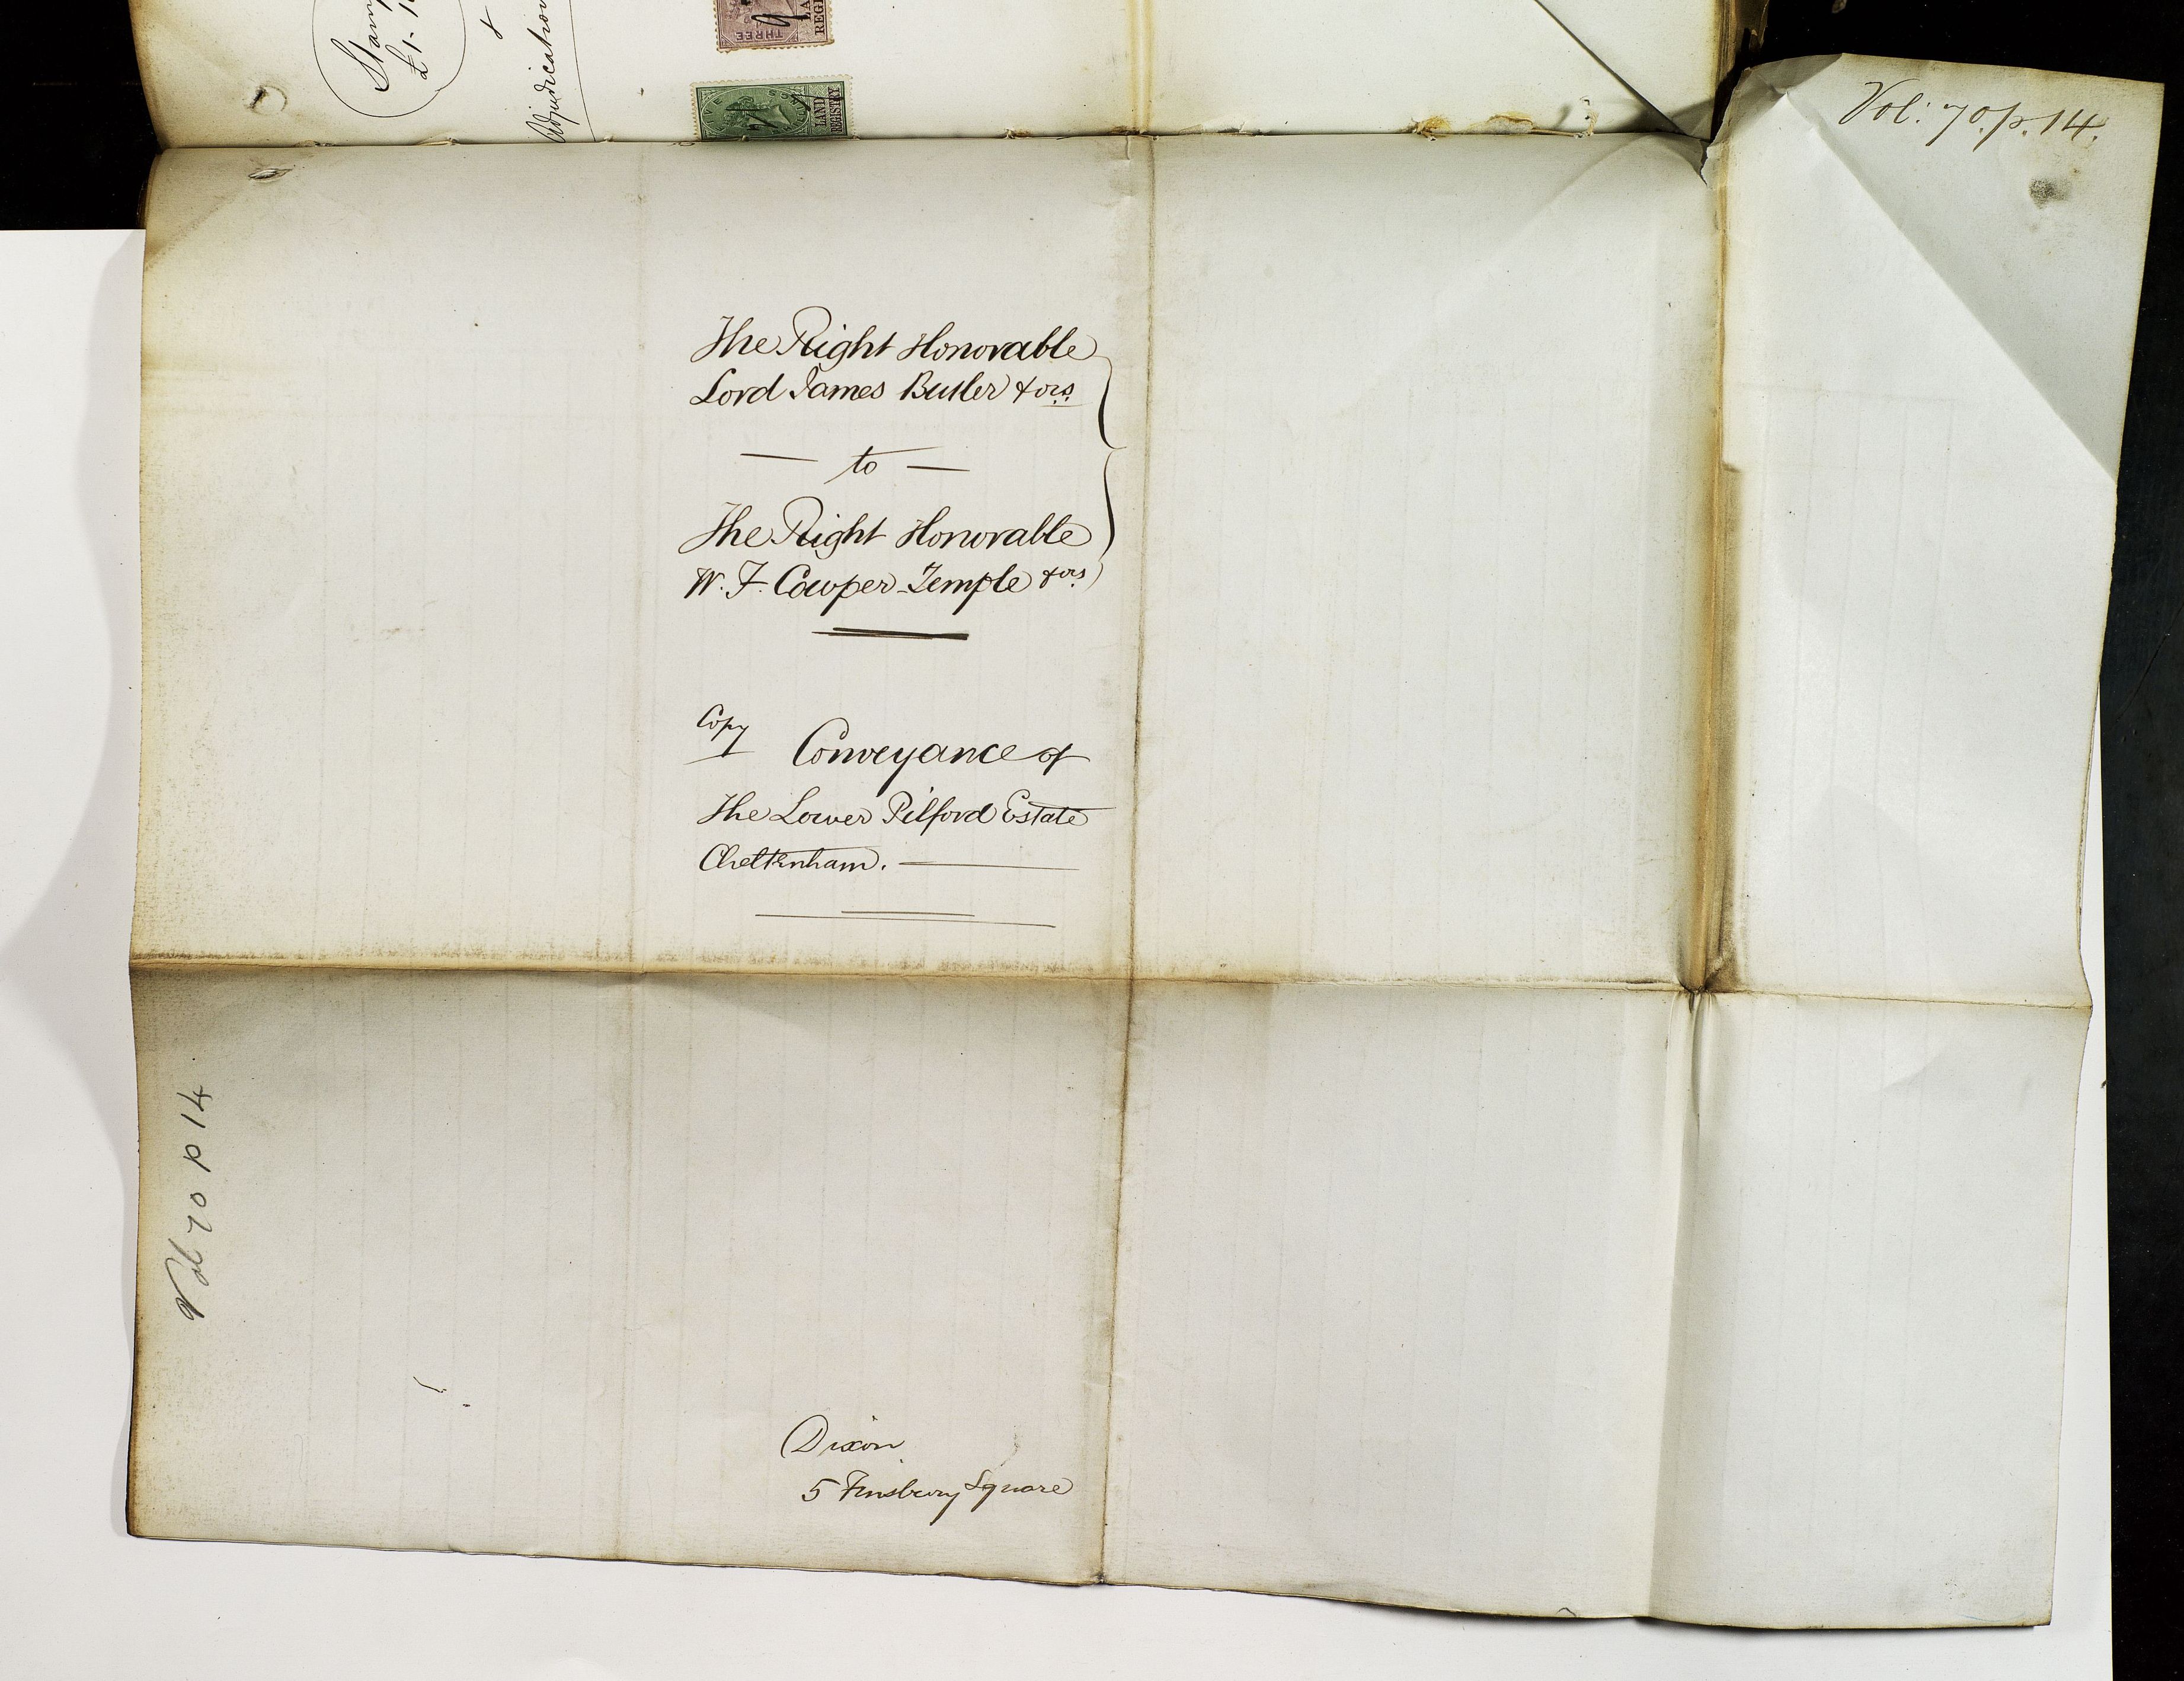 Stam
£1. 1
&
Adjudication
THREE
LAND
REGISTRY
Vol: 70. p. 14.
The Right Honorable
Lord James Butler & ors.
— to —
The Right Honorable
W. F. Cowper-Temple & ors.
Copy
Conveyance of
The Lower Pilford Estate
Cheltenham.
Vol 70 p 14
Dixon
5 Finsbury Square